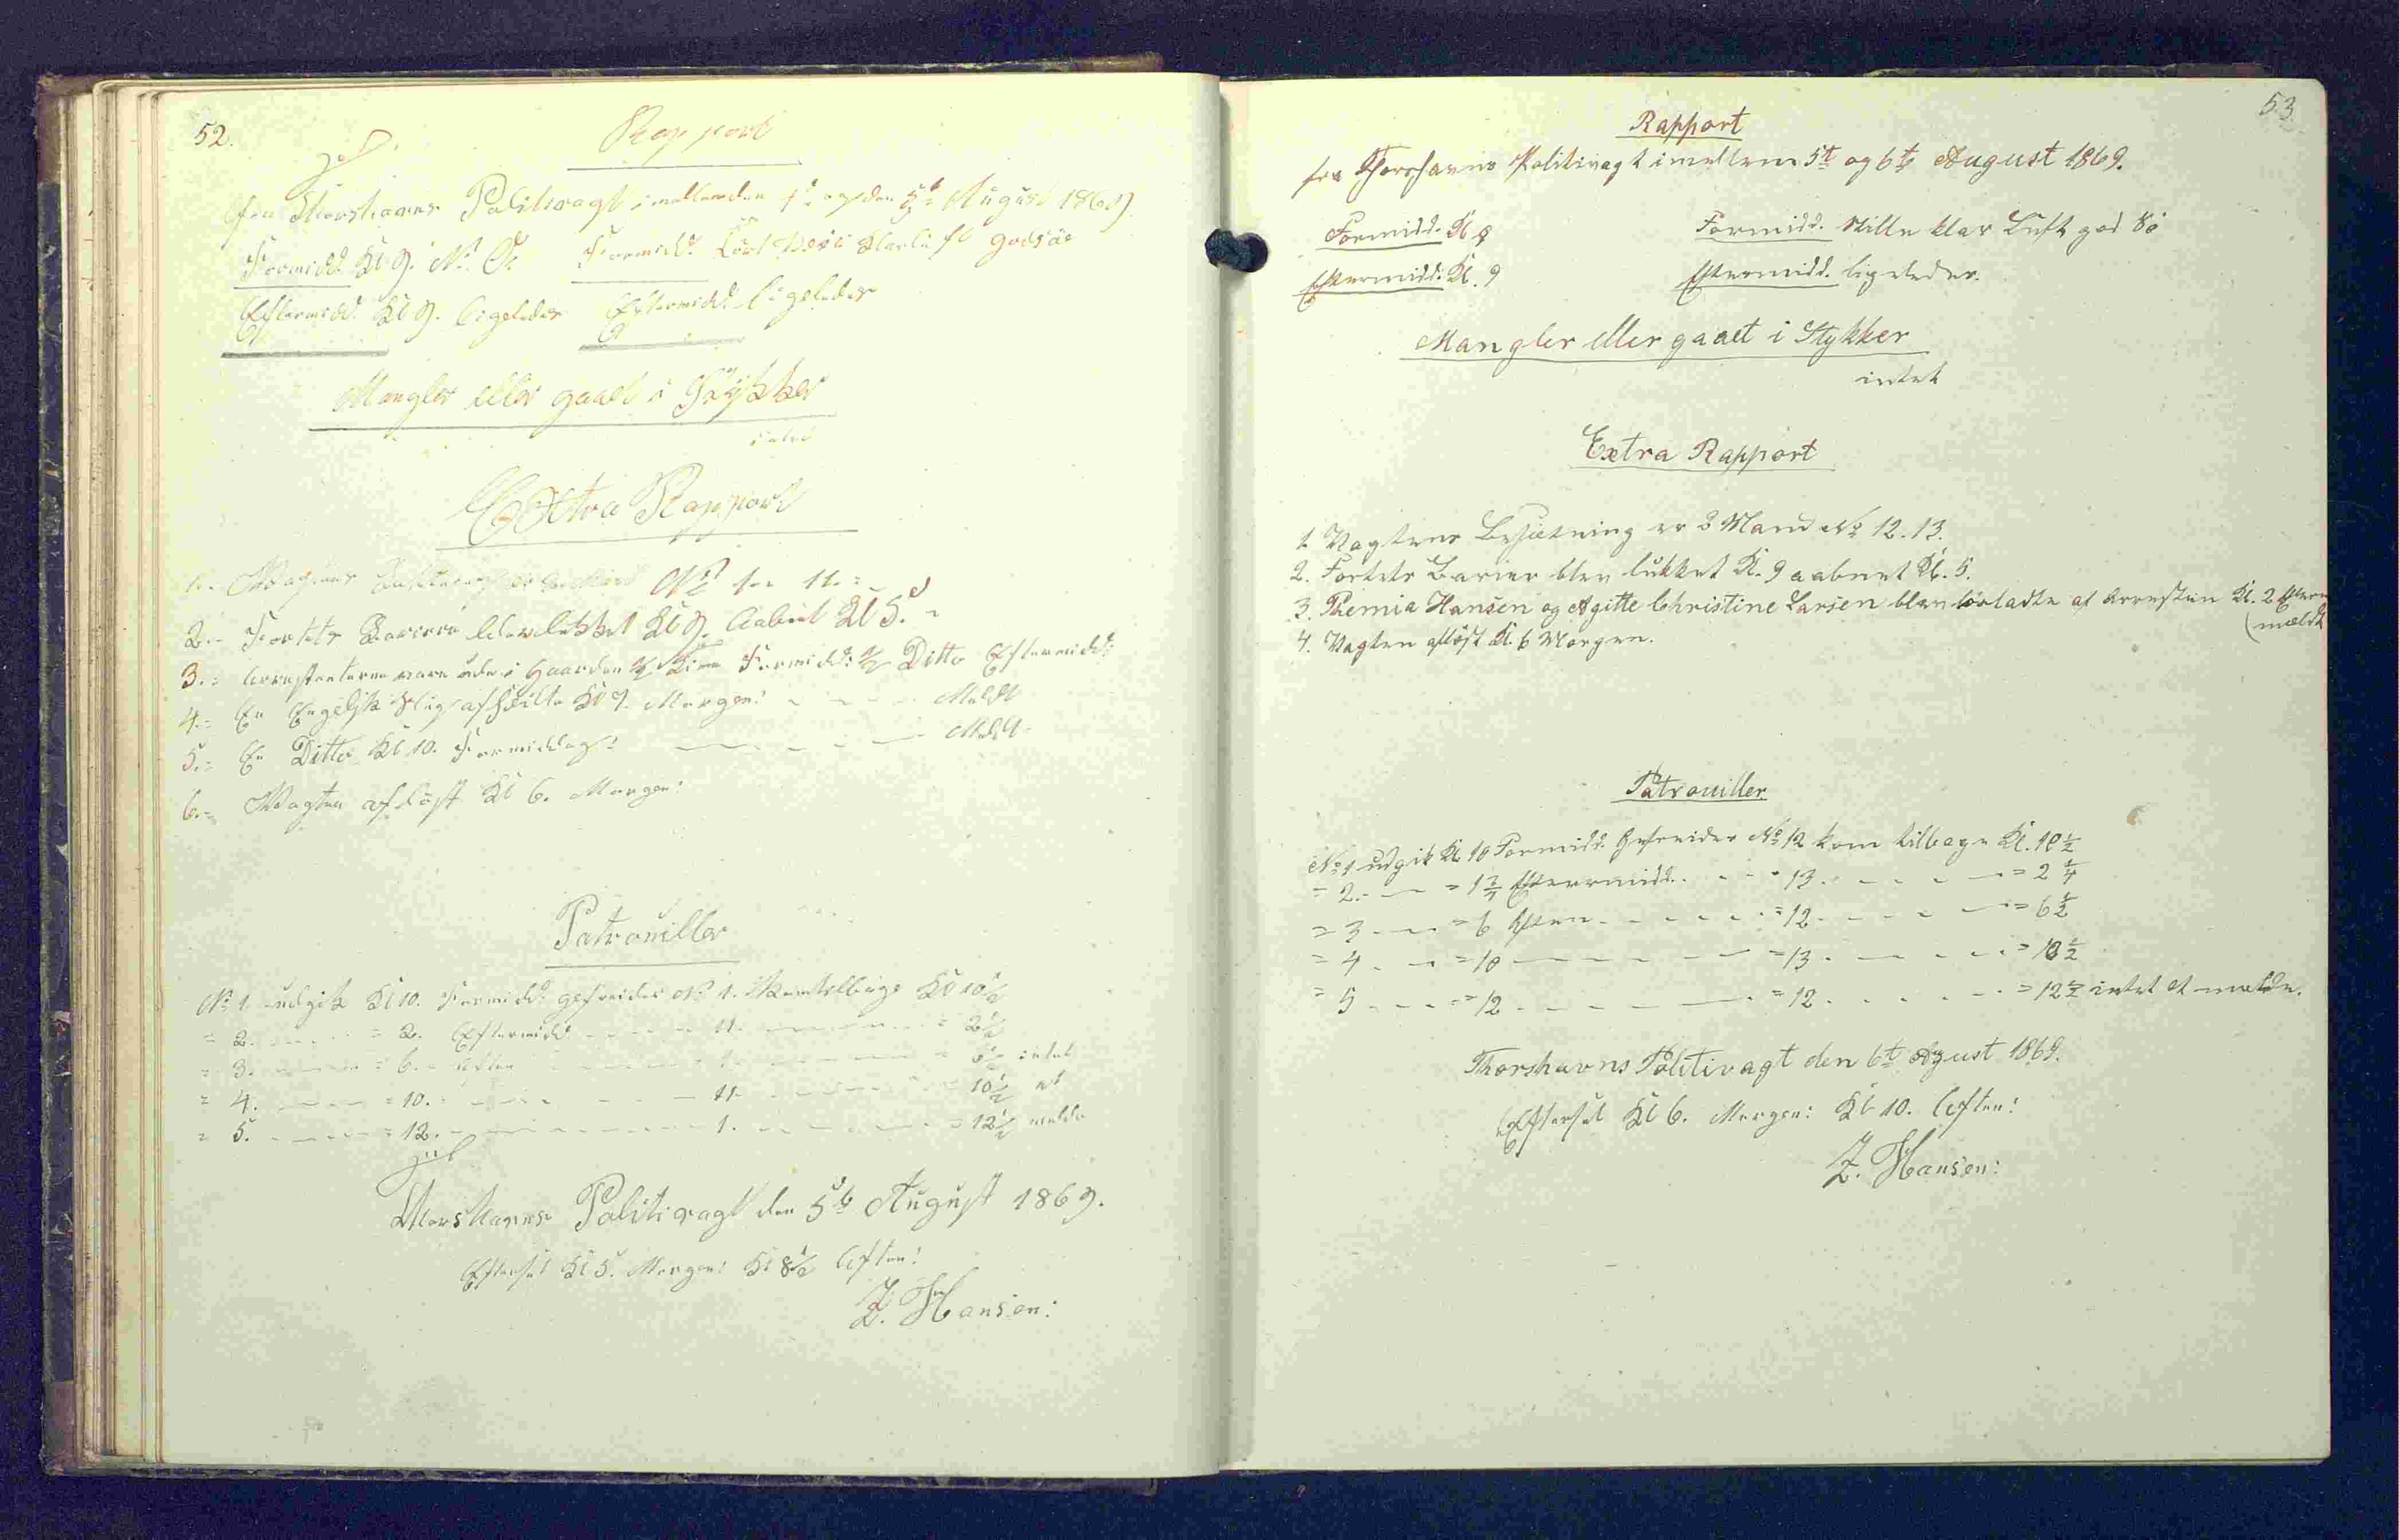 52.
Rapport
fra Thorshavns Politivagt imellem den 4de og den 5te August 1869.
Formidd. Kl 9. N. O. Formidd. Klarluft god söe
Eftermidd. Kl 9. ligeledes Eftermidd. ligeledes
Mangler eller gaaet i Stykker
intet
Extra Rapport
1. Vagtens Besætning er 2 Mand No 1. 11.
2. Fortets Barriere blev lukket Kl 9. Aabnet Kl 5.
3. Arrestanterne vare ude i Gaarden ½ Time Formidd: ½ Ditto Eftermidd:
4. En Engelsk Slup afseilte Kl 7. Morgen: Meldt
5. En Ditto Kl 10. Formiddag: Meldt
6. Vagten aflöst Kl 6. Morgen:
Patrouiller
No 1. udgik Kl 10. Formidd: gefreider No 1. Kom tilbage Kl 10½
= 2. = 2. Eftermidd 11. = 2½
= 3. = 6. Aften 1. = 6½ intet
= 4. = 10. 11. = 10½ at
= 5. = 12. 1. = 12½ melde
Thorshavns Politivagt den 5te August 1869.
Efterset Kl 5. Morgen: Kl 8½ Aften!
Z. Hansen:
53
Rapport
fra Thorshavns Politivagt imellem 5te og 6te August 1869.
Formidd. Kl 9 Formidd. Stille klar Luft god Sö
Eftermidd: Kl. 9 Eftermidd. ligeledes.
Mangler eller gaaet i Stykker
intet
Extra Rapport
1 Vagtens Besætning er 2 Mand No 12. 13.
2. Fortets Barier blev lukket Kl. 9 aabnet Kl. 5.
3. Themia Hansen og Agitte Christine Larsen blev lösladte af Arresten Kl. 2 Efterm
(meldt
4. Vagten aflöst Kl. 6 Morgen.
Patrouiller
No 1 udgik Kl. 10 Formidd. Gefreider No 12 kom tilbage Kl. 10½
= 2. = 1¾ Eftermidd. 13. = 2¼
= 3 = 6 Aften = 12. = 6½
= 4 = 10 = 13. = 10½
= 5 = 12 = 12. = 12½ intet at melde.
Thorshavns Politivagt den 6te Agust 1869.
Efterset Kl 6. Morgen: Kl 10. Aften:
Z. Hansen: